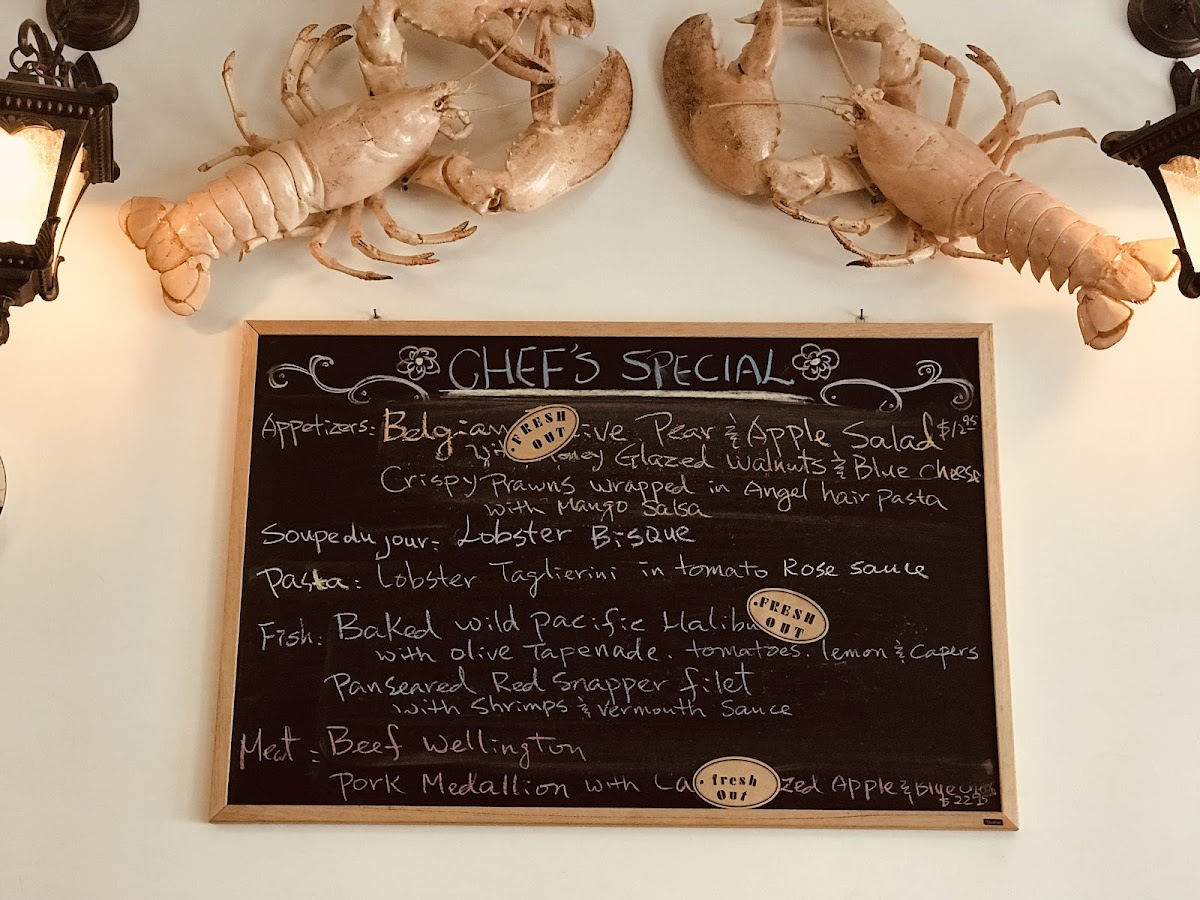 CHEF'S SPECIAL
Appetizers: Belgian FRESH OUT ive, Pear & Apple Salad $12.95
with Honey Glazed Walnuts & Blue cheese
Crispy Prawns wrapped in Angel hair pasta
with Mango Salsa
Soupe du jour: Lobster BisQue
Pasta: Lobster Taglierini in tomato Rose sauce
Fish: Baked wild pacific Halibu FRESH OUT
with olive Tapenade, tomatoes, lemon & Capers
Panseared Red Snapper filet
with Shrimps & Vermouth Sauce
Meat: Beef Wellington
Pork Medallion with Ca fresh Out zed Apple & Blue
$22.95